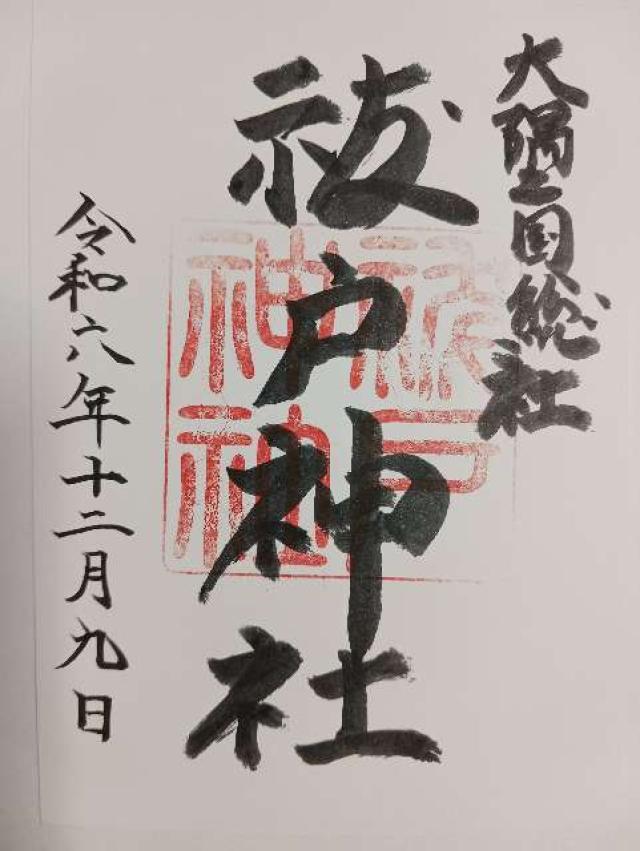 大隅之国総社
祓戸神社
祓戸
神社
令和六年十二月九日